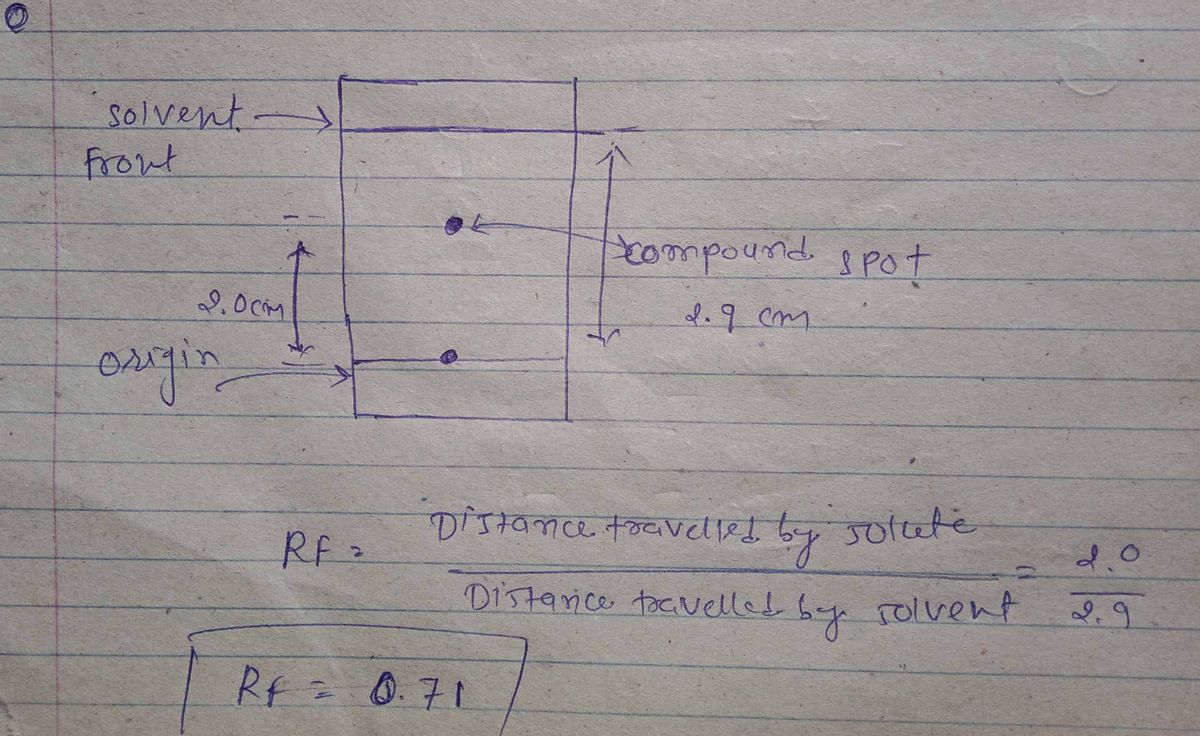 solvent
Front
compound spot
2.0cm
2.9 cm
origin
Distance travelled by solute
RF = = 2.0
Distance travelled by solvent 2.9
Rf = 0.71